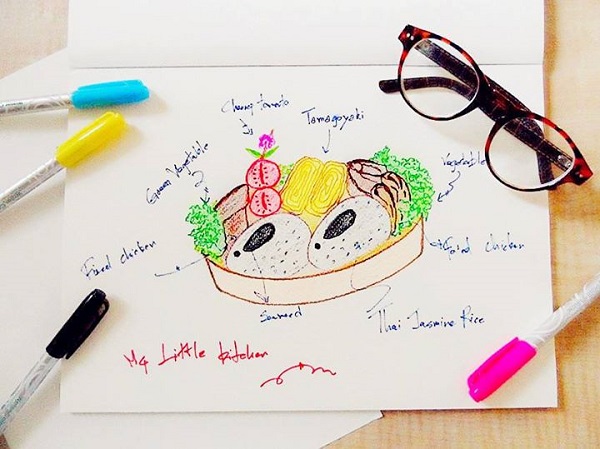 Cherry tomato
Tamagoyaki
Green Vegetable
Vegetable
Fried chicken
Fried chicken
Seaweed
Thai Jasmine Rice
My Little kitchen